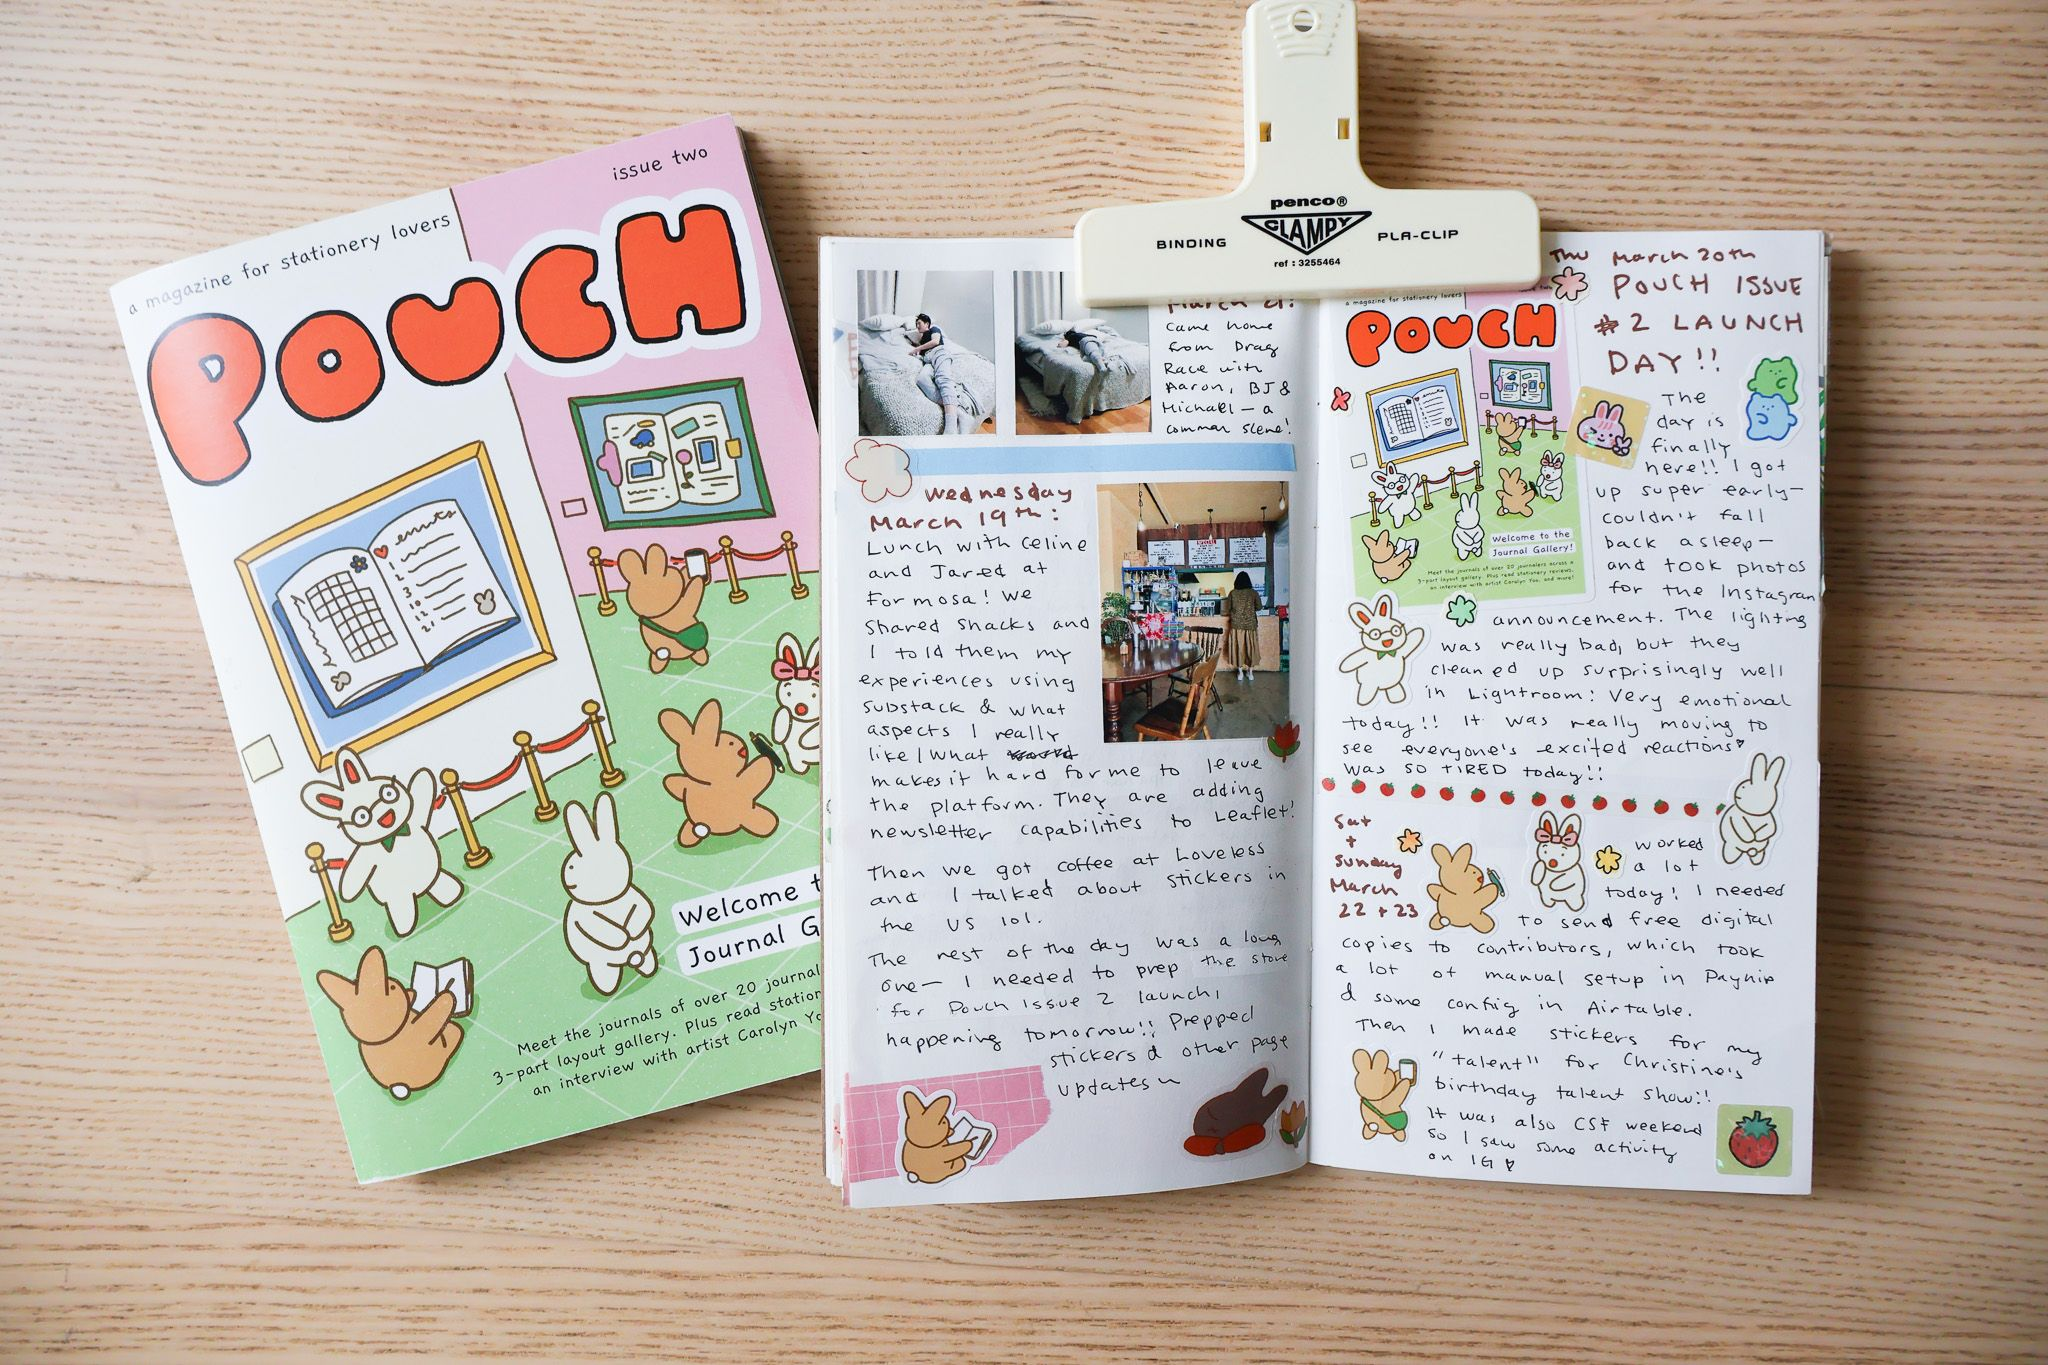 a magazine for stationery lovers
issue two
POUCH
events
Welcome t
Journal G
Meet the journals of over 20 journal
3-part layout gallery. Plus read station
an interview with artist Carolyn Yo
penco®
CLAMPY
BINDING
PLA-CLIP
ref : 3255464
March 21:
Came home
from Drag
Race with
Aaron, BJ &
Michael — a
common scene!
Wednesday
March 19th:
Lunch with Celine
and Jared at
Formosa! We
shared snacks and
I told them my
experiences using
substack & what
aspects I really
like/what
makes it hard for me to leave
the platform. They are adding
newsletter capabilities to Leaflet!
Then we got coffee at Loveless
and I talked about stickers in
the US lol.
The rest of the day was a long
one— I needed to prep the store
for Pouch Issue 2 launch,
happening tomorrow!! Prepped
stickers & other page
updates~
Thu March 20th
POUCH ISSUE
#2 LAUNCH
DAY!!
a magazine for stationery lovers
issue two
POUCH
Welcome to the
Journal Gallery!
Meet the journals of over 20 journalers across a
3-part layout gallery. Plus read stationery reviews,
an interview with artist Carolyn Yoo, and more!
The
day is
finally
here!! I got
up super early—
couldn't fall
back asleep—
and took photos
for the Instagram
announcement. The lighting
was really bad, but they
cleaned up surprisingly well
in Lightroom! Very emotional
today!! It was really moving to
see everyone's excited reactions♥
Was SO TIRED today!!
Sat
+
Sunday
March
22 + 23
Worked
a lot
today! I needed
to send free digital
copies to contributors, which took
a lot of manual setup in Payhip
& some config in Airtable.
Then I made stickers for my
"talent" for Christine's
birthday talent show!!
It was also CSF weekend
so I saw some activity
on IG ♥